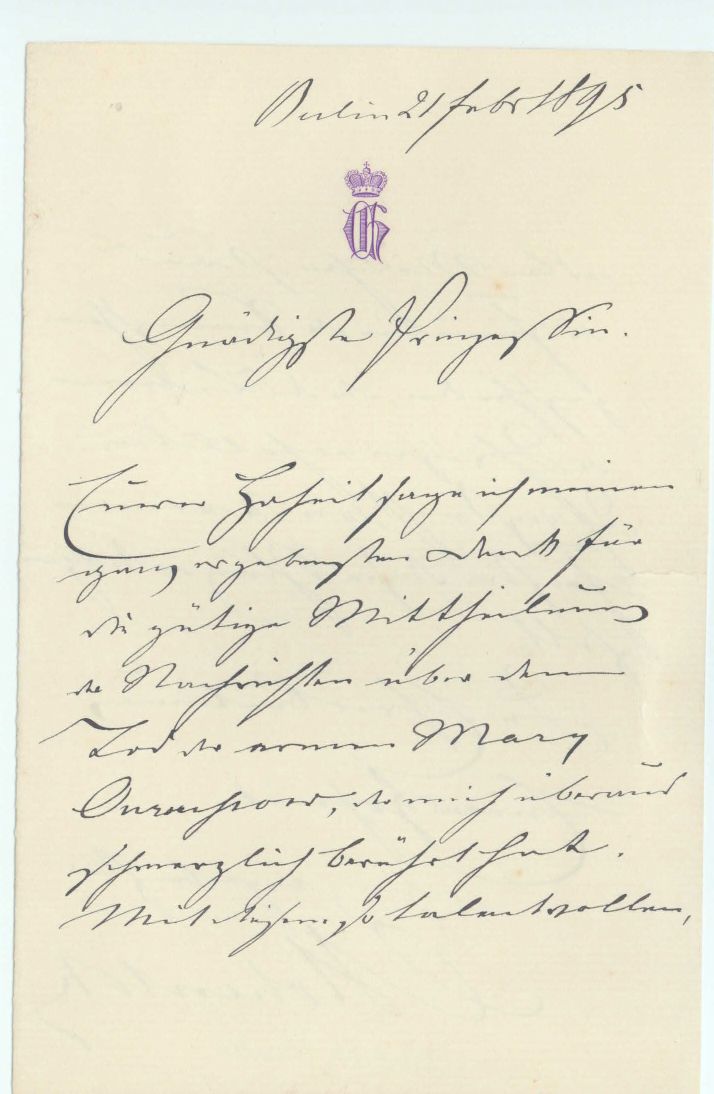 Berlin 21 Febr 1895
Gnädigste Prinzessin.
Eurer Hoheit sage ich meinen
ganz ergebensten Dank für
die gütige Mittheilung
der Nachrichten über den
Tod der armen Mary
, der mich überaus
schmerzlich berührt hat.
Mit dieser so talentvollen,